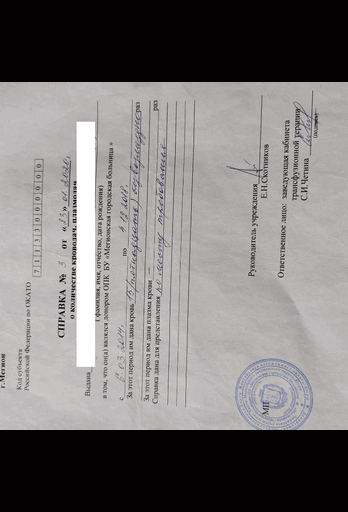 г.Мегион
Код субъекта
Российской Федерации по ОКАТО 7 1 1 3 3 0 0 0 0 0 0
СПРАВКА № 3 от «23» 01 2020г.
о количестве кроводач, плазмодач
Выдана
( фамилия, имя, отчество, дата рождения)
в том, что он(а) являлся донором ОПК БУ «Мегионская городская больница »
с 6.03.2014г. по 4.12.2019г.
За этот период им дана кровь 15 (пятнадцать) раз
За этот период им дана плазма крови — раз
Справка дана для представления по месту требования
Руководитель учреждения
Е.Н.Скотников
Ответственное лицо: заведующая кабинета
трансфузионной терапии
С.И.Чегина
(подпись)
МП